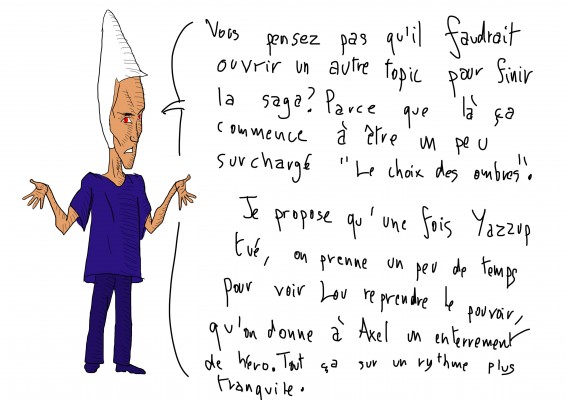 Vous pensez pas qu'il faudrait
ouvrir un autre topic pour finir
la saga? Parce que là ça
commence à être un peu
surchargé "Le choix des ombres".
Je propose qu'une fois Yazzup
tué, on prenne un peu de temps
pour voir Lou reprendre le pouvoir,
qu'on donne à Axel un enterrement
de héro. Tout ça sur un rythme plus
tranquite.